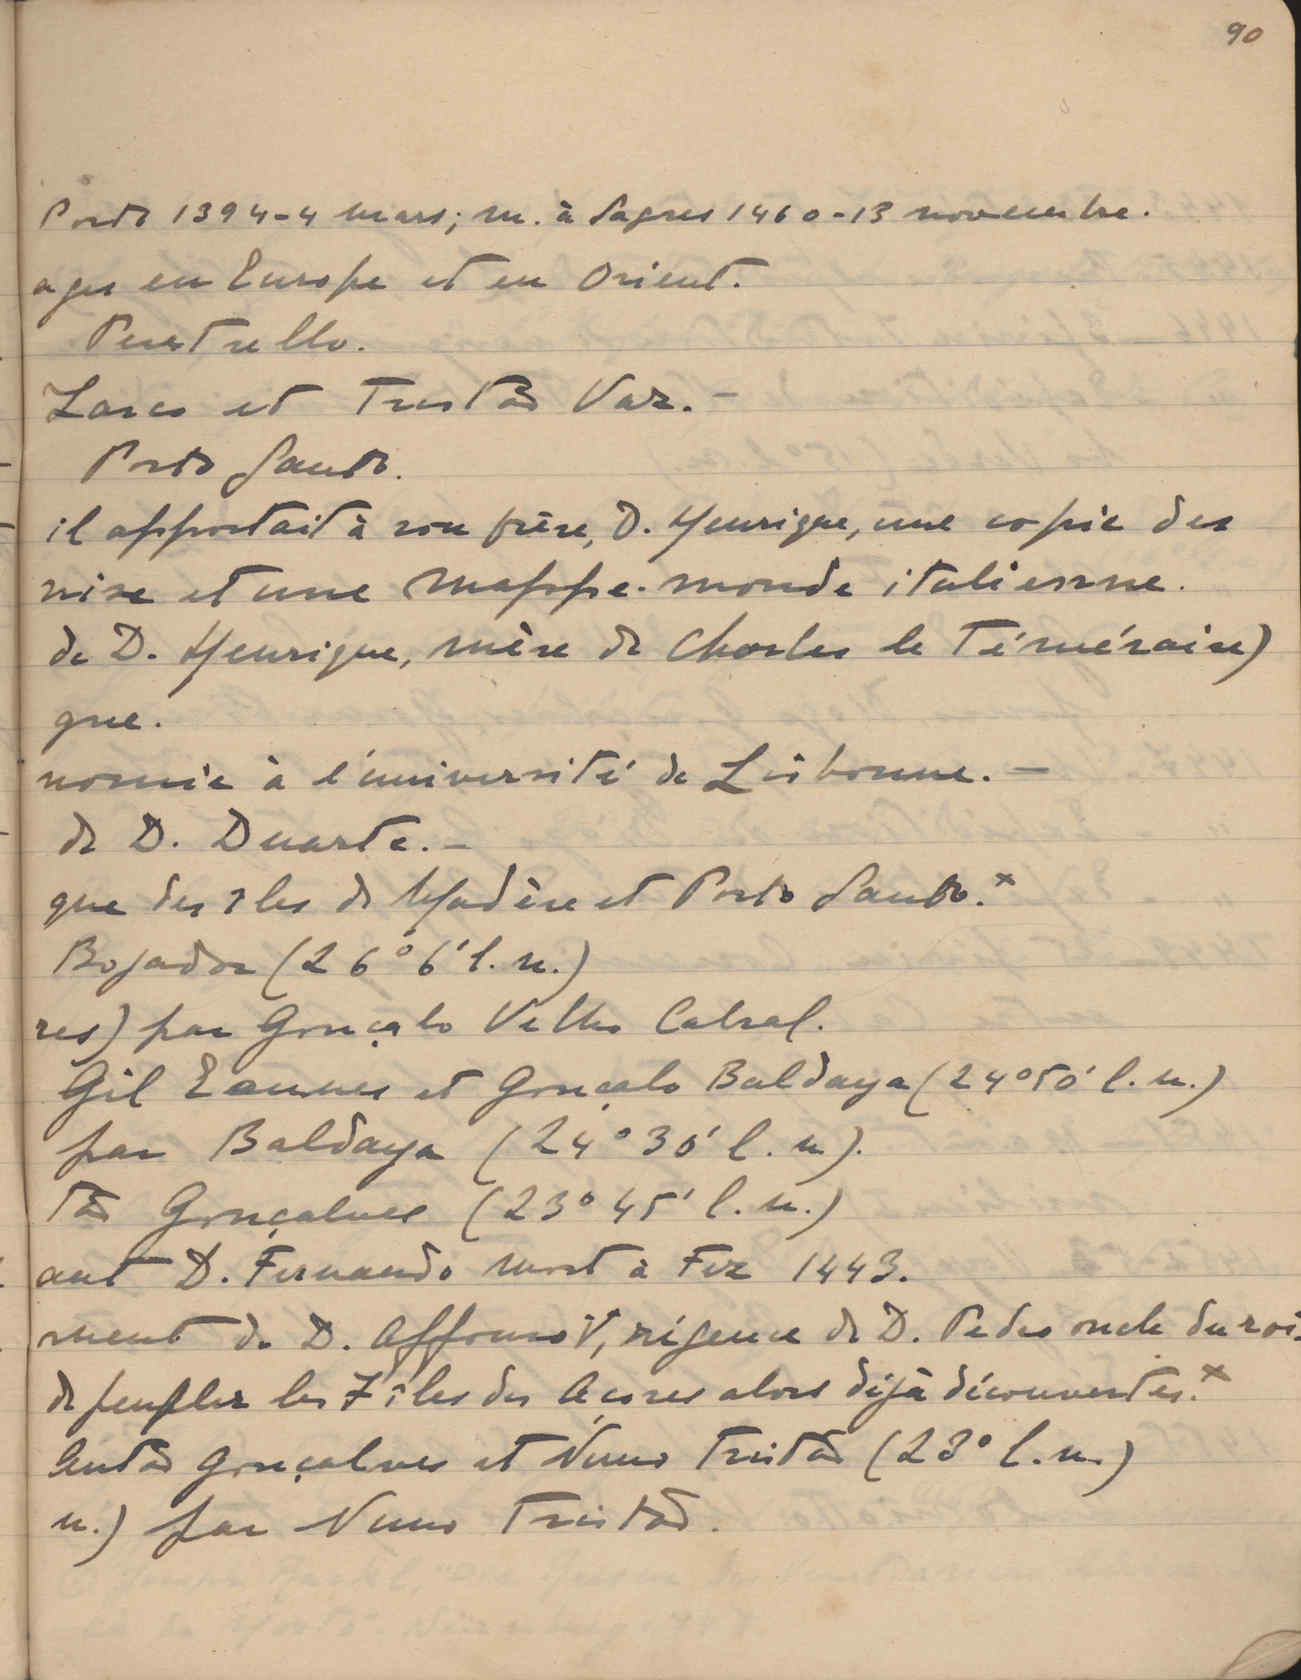 90
Porto 1394-4 mars; m. à Sagres 1460-13 novembre.
ages en Europe et en Orient.
Perestrello.
Zarco et Tristão Vaz.—
Porto Santo.
il apportait à son frère, D. Henrique, une copie des
nise et une mappe-monde italienne.
de D. Henrique, mère de Charles le Téméraire)
que.
nomie à l'université de Lisbonne.—
de D. Duarte.—
que des îles de Madère et Porto Santo.x
Bojador (26°6' l.n.)
res) par Gonçalo Velho Cabral.
Gil Eannes et Gonçalo Baldaya (24°50' l.n.)
par Baldaya (24°30' l.n.).
tão Gonçalves (23°45' l.n.)
ant D. Fernando mort à Fez 1443.
ment de D. Affonso V, régence de D. Pedro oncle du roi.
de peupler les 7 îles des Açores alors déjà découvertes.x
Antão Gonçalves et Nuno Tristão (23° l.n.)
n.) par Nuno Tristão.